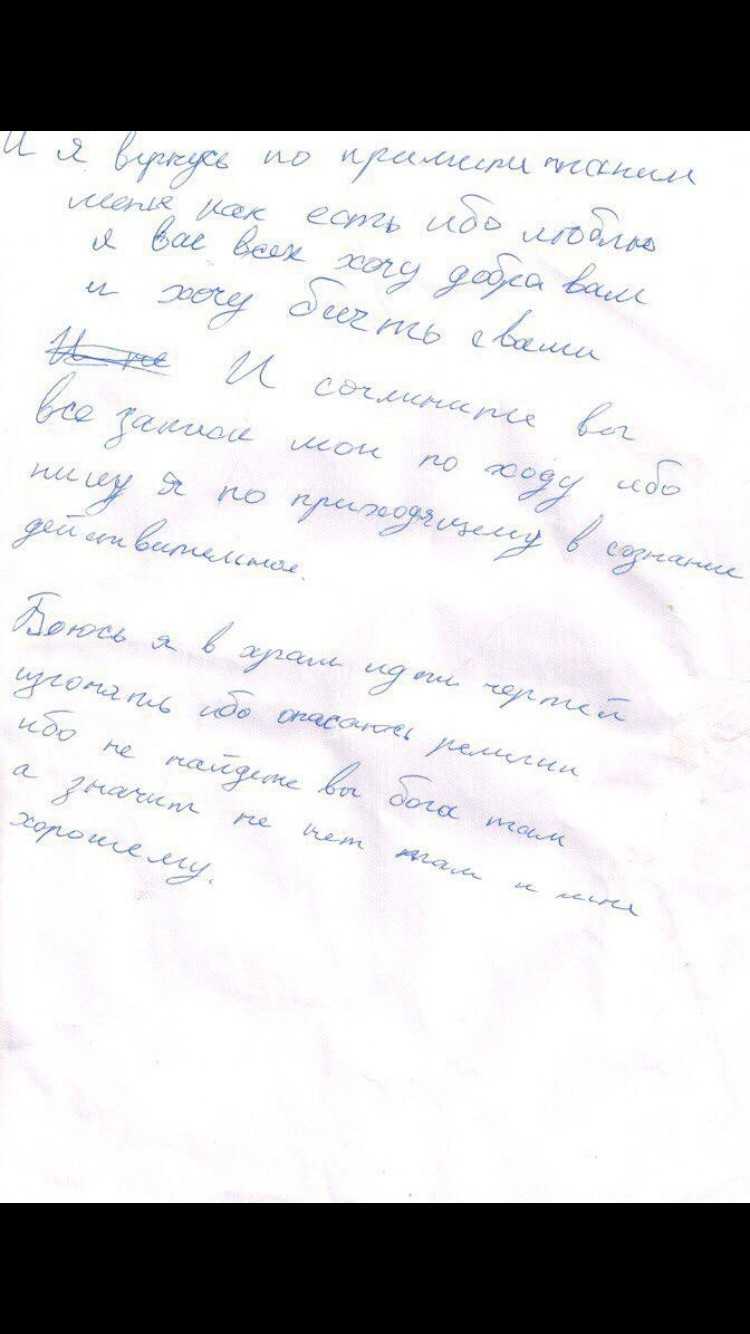 И я вернусь но примите таким
меня как есть ибо люблю
я вас всех хочу добра вам
и хочу быть с вами
И не И сочлините вы
все записи мои по ходу ибо
пишу я по приходящему в сознание
действительное.
Боюсь я в храм идти чертей
изгонять ибо опасаюсь религии
ибо не найдете вы бога там
а значит не чет там и мне
хорошему.